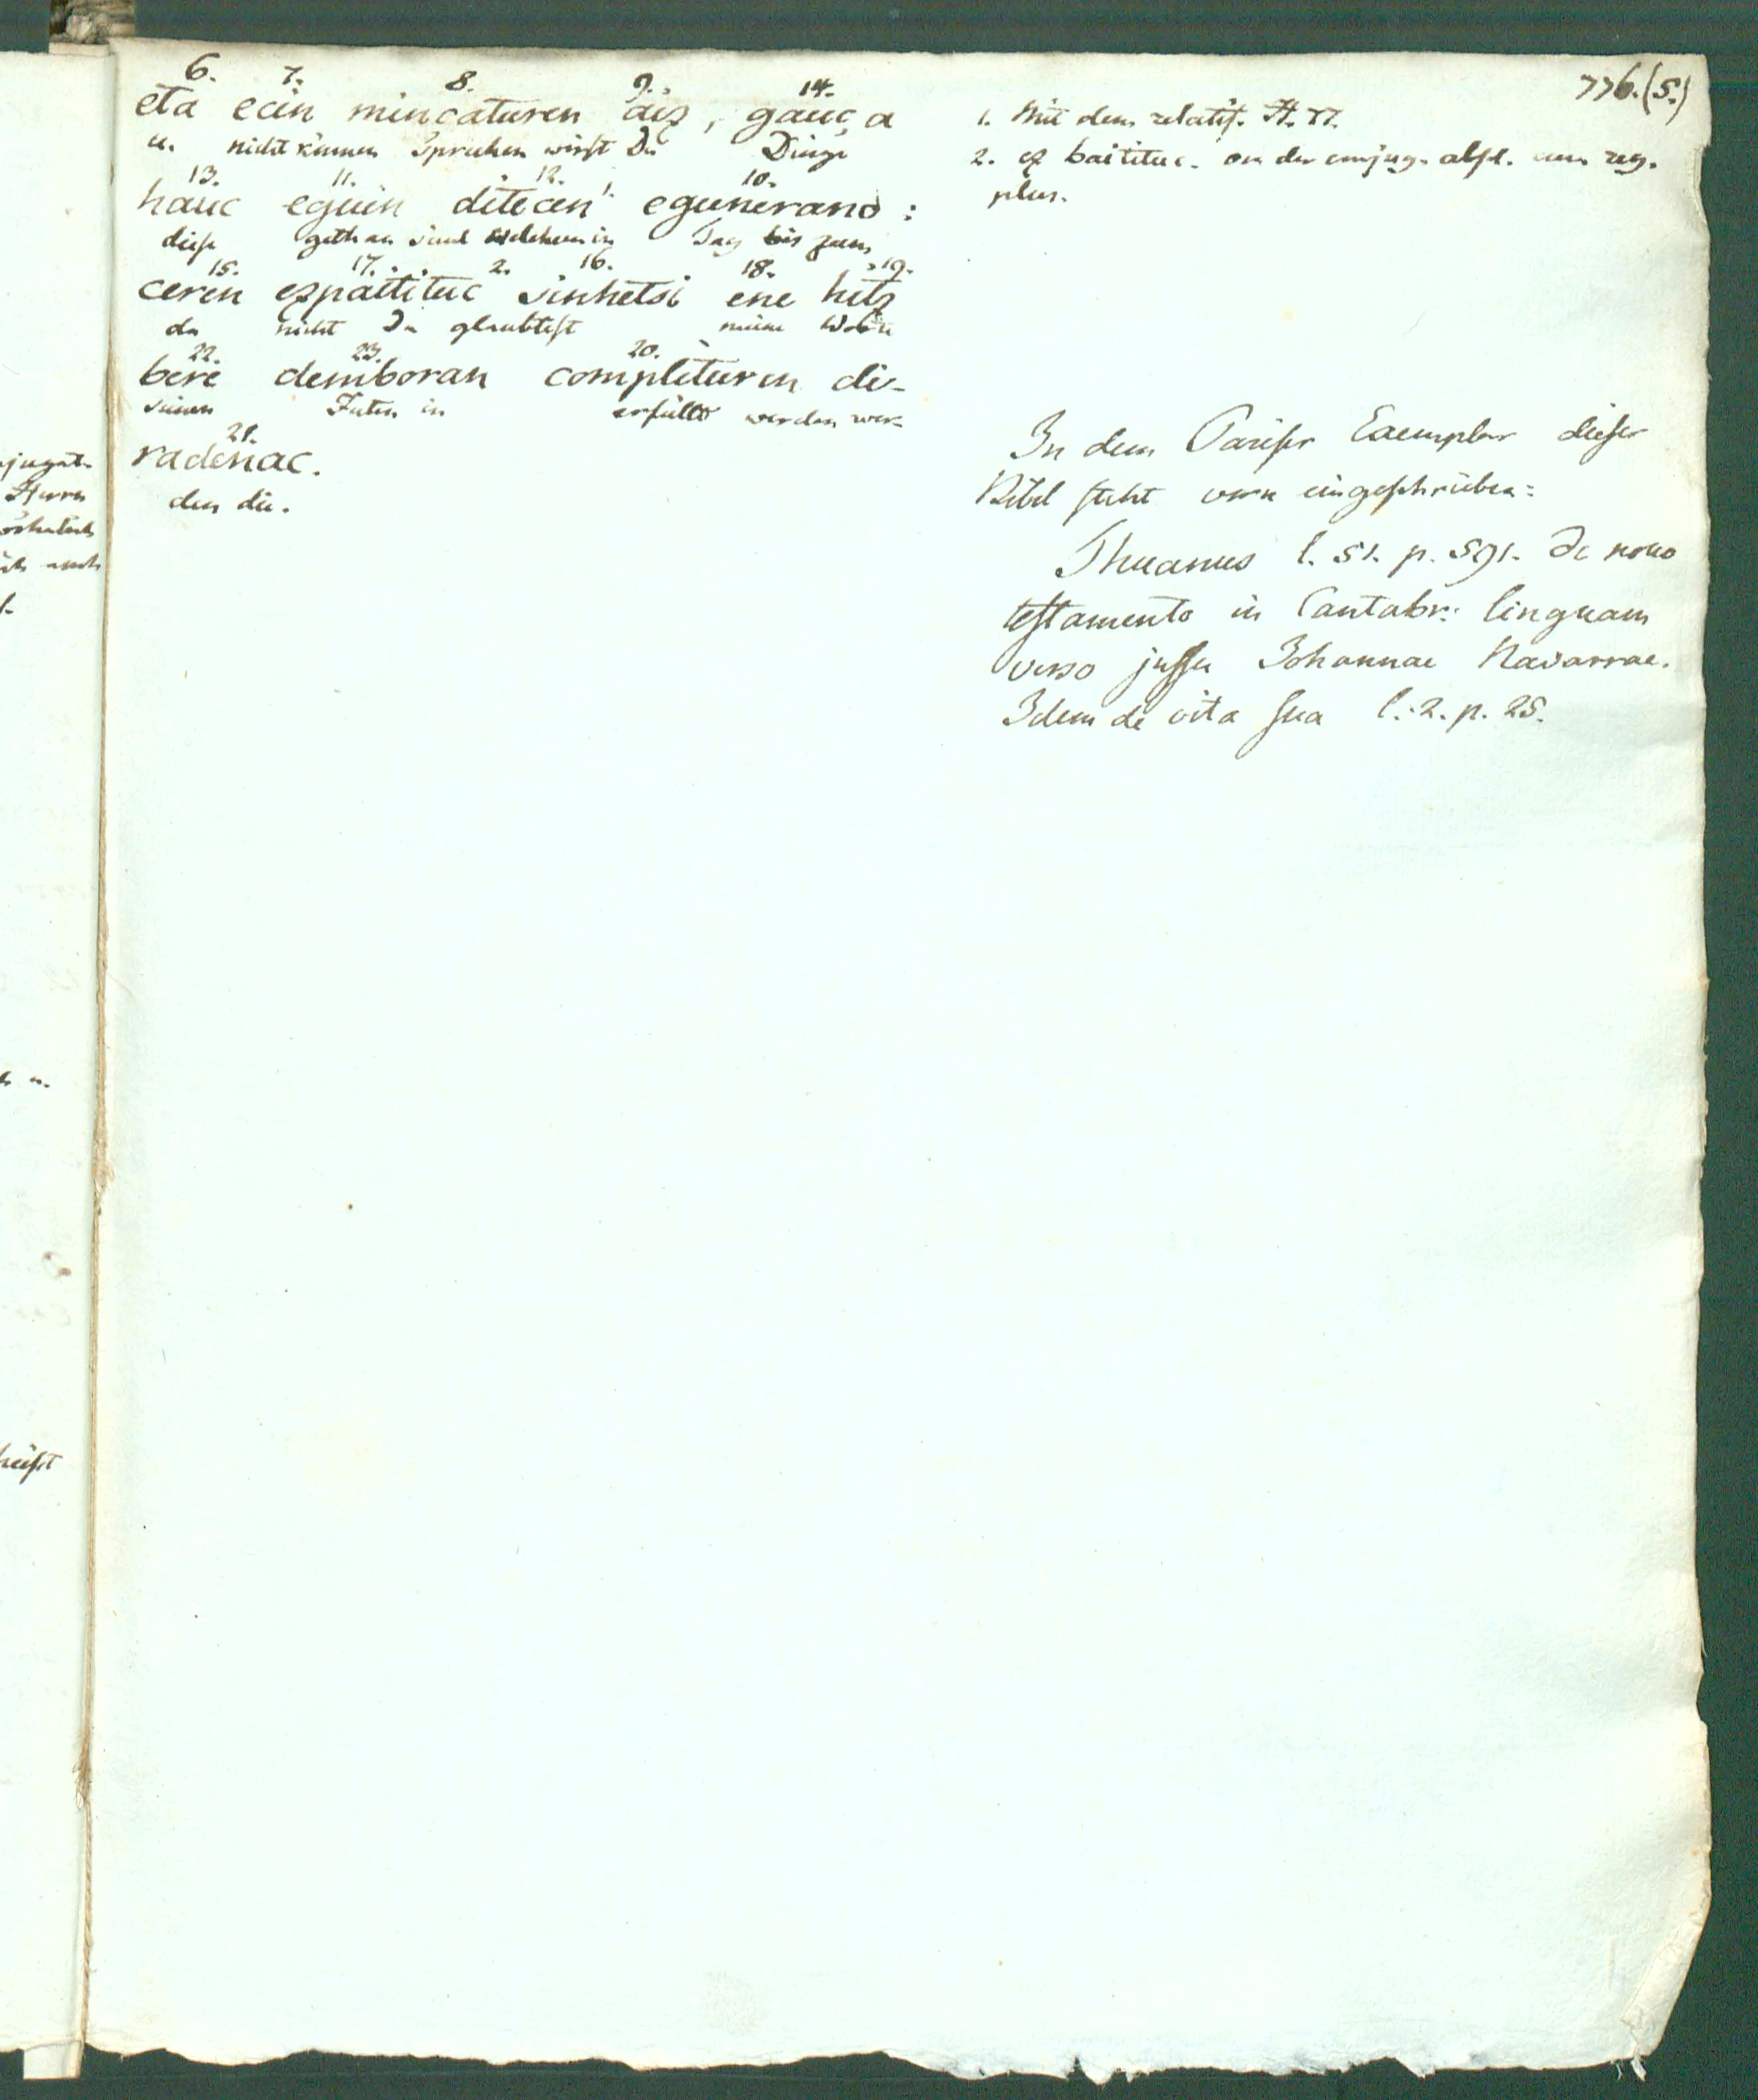 776.(5.)
6. 7. 8. 9. 14.
eta ecin mincaturen aiz, gauça
u. nicht können Sprechen wirst Du Dinge
13. 11. 12. 1. 10.
hauc eguin diteçen egunerano:
diese gethan sind welchem in Tag bis zum
15. 17. 2. 16. 18. 19.
ceren ezpaititue sinhetsi ene hitz
da nicht Du glaubtest meine Worte
22. 23. 20.
bere demboran complituren di-
seinen Zeiten in erfüllt werden wer-
21.
radenac.
den die.
1. Mit dem relatif.
2. ez baititue. von der conjug.
plur.
In dem Pariser Exemplar dieser
Bibel steht vorn eingeschrieben:
Thuanus l. 51. p. 591. De novo
testamento in Cantabr: linguam
verso jussu Johannae Navarrae.
Idem de vita sua l. 2. p. 25.
jugat.
Herrn
heißt